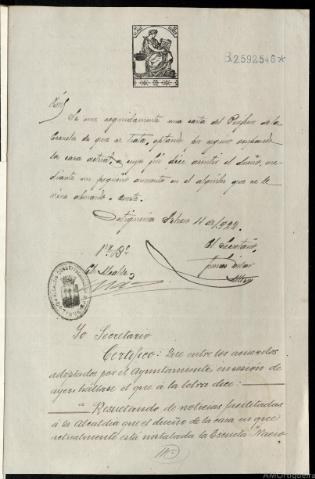 B.2592546*
Se une seguidamente una carta del Profesor de la
Escuela de que se trata, optando por seguir ocupando
la casa actual, a cuyo fin dice el dueño, me
diante un pequeño aumento en el alquiler que se le
viene abonando.
Ortigueira Febrero 11 de 1922.
Vº Bº
El Alcalde,
El Secretario,
Yo Secretario
Certifico: Que entre los acuerdos
adoptados por el Ayuntamiento en sesión de
ayer hállase el que á la letra dice:
"Resultando de noticias facilitadas
á la Alcaldía que el dueño de la casa en que
actualmente está instalada la Escuela Nacio